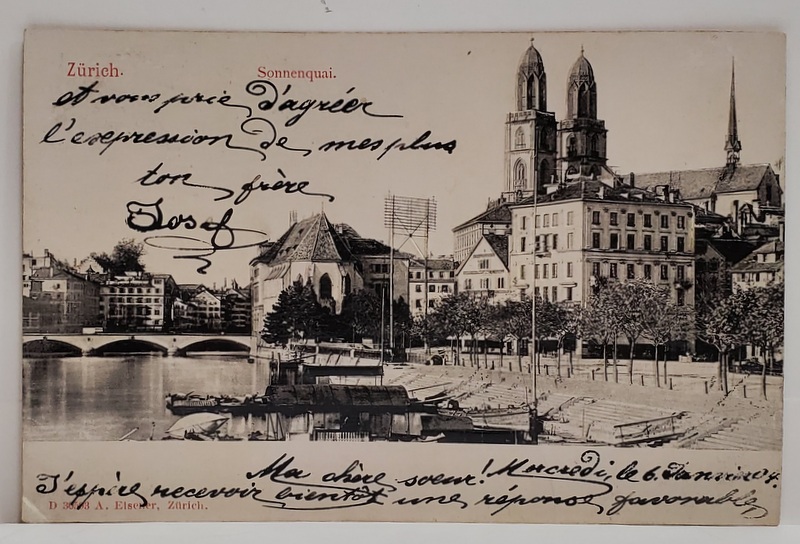 Zürich.
Sonnenquai.
et vous prie d'agréer
l'expression de mes plus
ton frère
Josef
Ma chère soeur! Mercredi, le 6. Janvier 04.
J'espère recevoir bientôt une réponse favorable,
A. Eischer, Zürich.